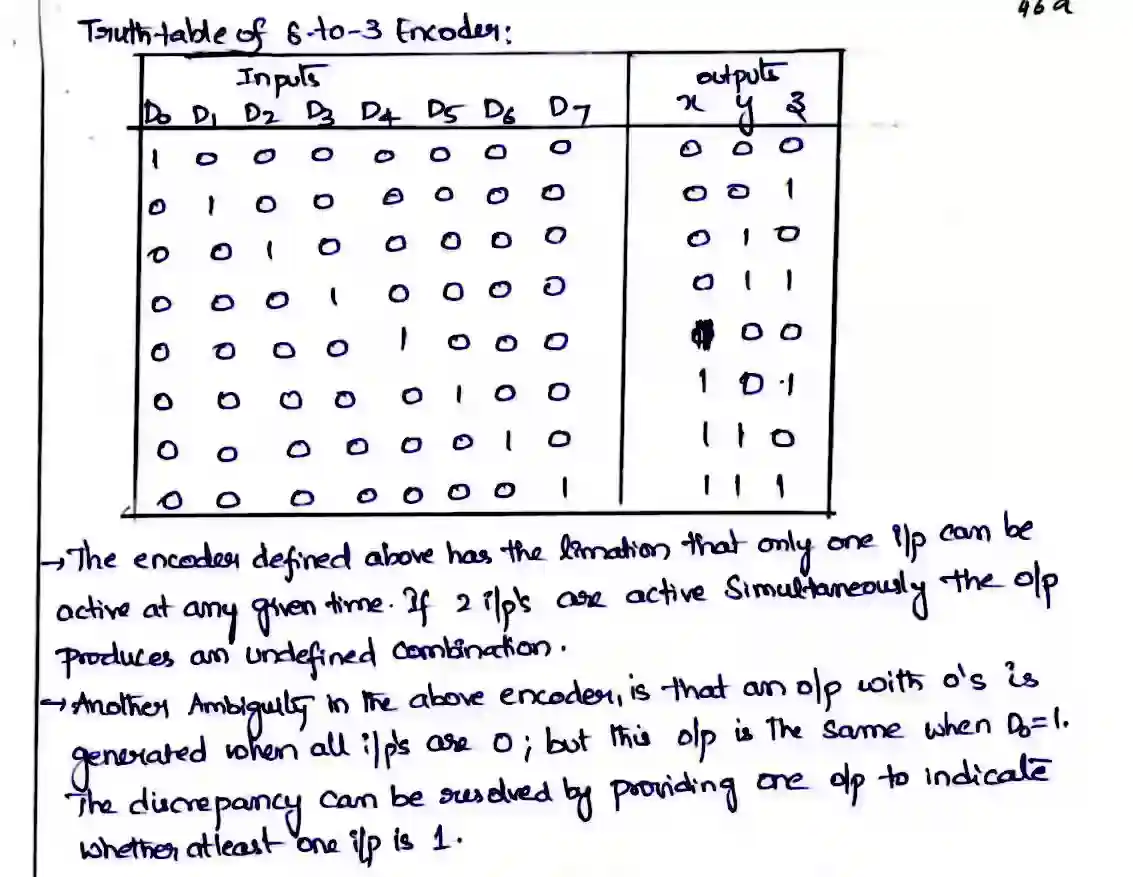 46a
Truth-table of 8-to-3 Encoder:
Inputs outputs
D0 D1 D2 D3 D4 D5 D6 D7 x y z
1 0 0 0 0 0 0 0 0 0 0
0 1 0 0 0 0 0 0 0 0 1
0 0 1 0 0 0 0 0 0 1 0
0 0 0 1 0 0 0 0 0 1 1
0 0 0 0 1 0 0 0 1 0 0
0 0 0 0 0 1 0 0 1 0 1
0 0 0 0 0 0 1 0 1 1 0
0 0 0 0 0 0 0 1 1 1 1
→ The encoder defined above has the limation that only one i/p can be
active at any given time. If 2 i/p's are active Simultaneously the o/p
produces an undefined combination.
→ Another Ambiguity in the above encoder, is that an o/p with 0's is
generated when all i/p's are 0; but this o/p is the same when D0=1.
The discrepancy can be resolved by providing one o/p to indicate
whether atleast one i/p is 1.